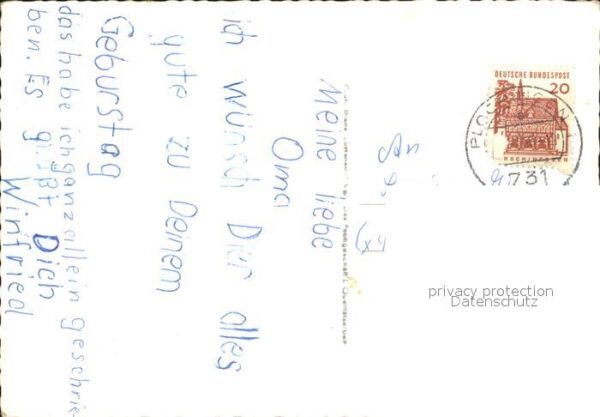 Meine liebe
Oma
ich wünsch Dier alles
gute zu Deinem
Geburstag
das habe ich ganz allein geschrie-
ben. Es grüßt Dich
Winfried
An
DEUTSCHE BUNDESPOST
20
731
privacy protection
Datenschutz